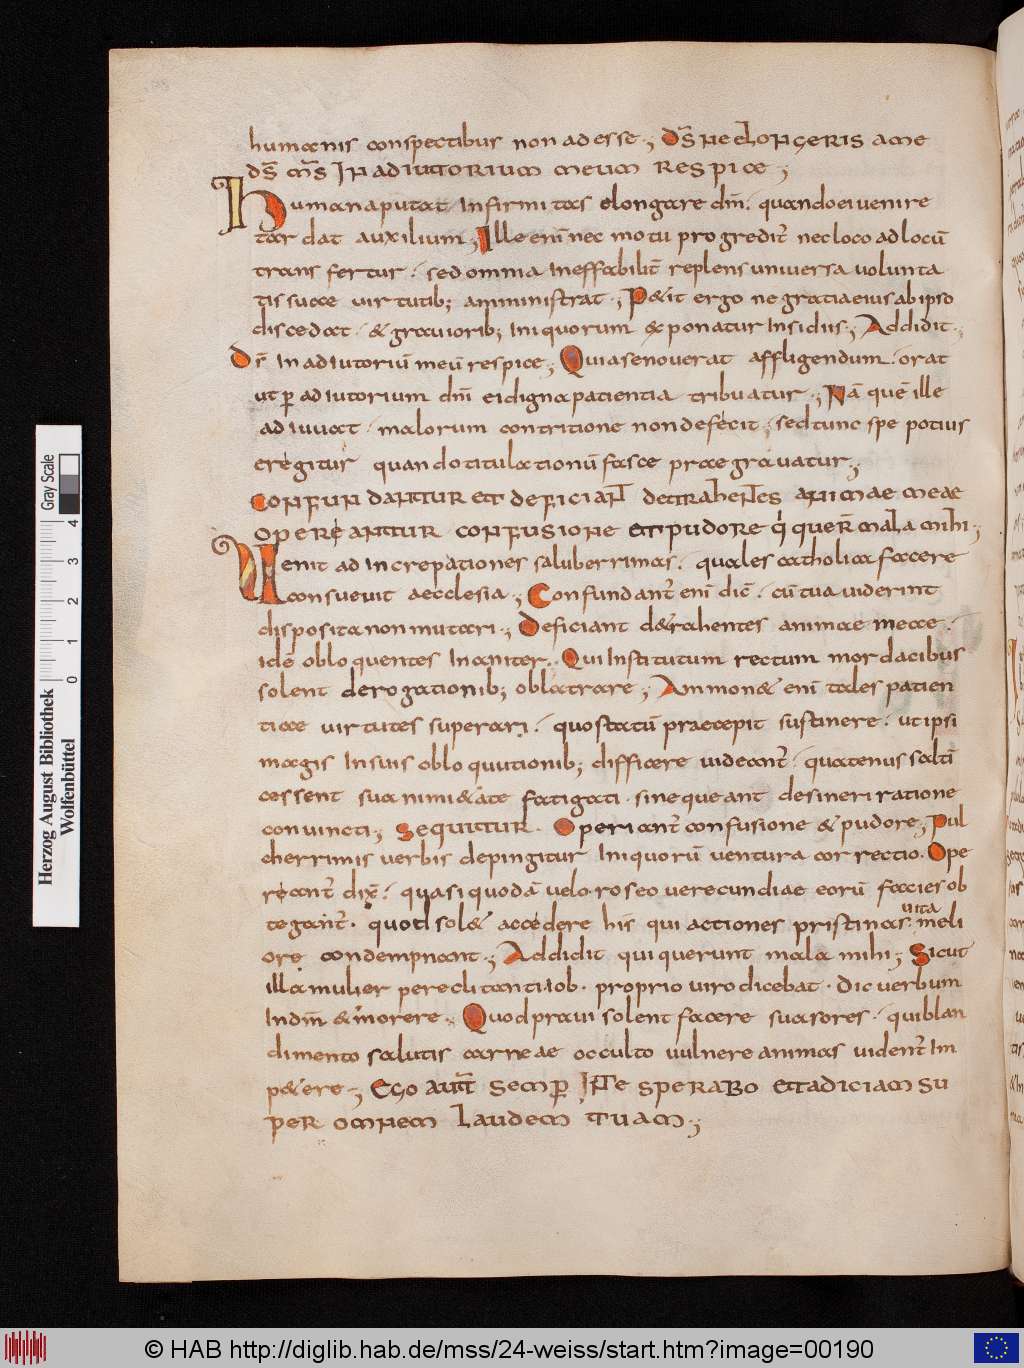 humanis conspectibus non adesse; Ds̄ ne elongeris a me
ds̄ ms̄ In adiutorium meum Respice;
Humana putat Infirmitas elongare dm̄. quando ei uenire
tardat auxilium; Ille eni nec motu progredit̄ nec loco ad locū
trans fertur. sed omnia Ineffabilit̄ replens uniuersa uolunta
tis suae uirtutib; amministrat; P&it ergo ne gratia eius ab ipso
discedat. & grauiorib; Iniquorum exponatur Insidiis; Addidit.
Dn̄ē In adiutoriū meū respice; Quia se nouerat affligendum. orat
ut p̱ adiutorium dnī ei digna patientia tribuatur; Nā quē ille
adiuuat. malorum contritione non defecit. sed tunc spe potius
eregitur quando titulationū fasce praegrauatur;
Confundantur et deficiant̄ detrahentes animae meae
opereantur confusione et pudore qi̇ quer̄ mala mihi;
Uenit ad increpationes saluberrimas. quales catholica facere
consueuit aecclesia; Confundant̄ enī dic̄. cū tua uiderint
disposita non mutari; Deficiant d&rahentes animae meae.
idē obloquentes Inaniter. Qui Institutum rectum mordacibus
solent derogationib; oblatrare; Ammon& enī tales patien
tiae uirtutes superari. quos tatū praecepit sustinere. ut ipsi
magis In suis obloquutionib; difficere uideant̄. quatenus saltī
cessent sua nimi&ate fatigati. sine queant desineri ratione
conuincti; Sequitur. Operiant̄ confusione & pudore; Pul
cherrimis uerbis depingitur Iniquorū uentura correctio. Ope
reant̄ dix̄. quasi quodā uelo roseo uerecundiae eorū facies ob
tegant̄. quod sol& accedere his qui actiones pristinas uita meli
ore condempnant; Addidit qui querunt mala mihi; Sicut
illa mulier pereclitanti Iob. proprio uiro dicebat. Dic uerbum
In dm̄ & morere. Quod praui solent facere suasores. qui blan
dimento salutis carneae occulto uulnere animas uident̄ Im
p&ere; Ego aut̄ semp̱ In te sperabo et adiciam su
per omnem laudem tuam;
Herzog August Bibliothek
Wolfenbüttel
Gray Scale
0 1 2 3 4
© HAB http://diglib.hab.de/mss/24-weiss/start.htm?image=00190